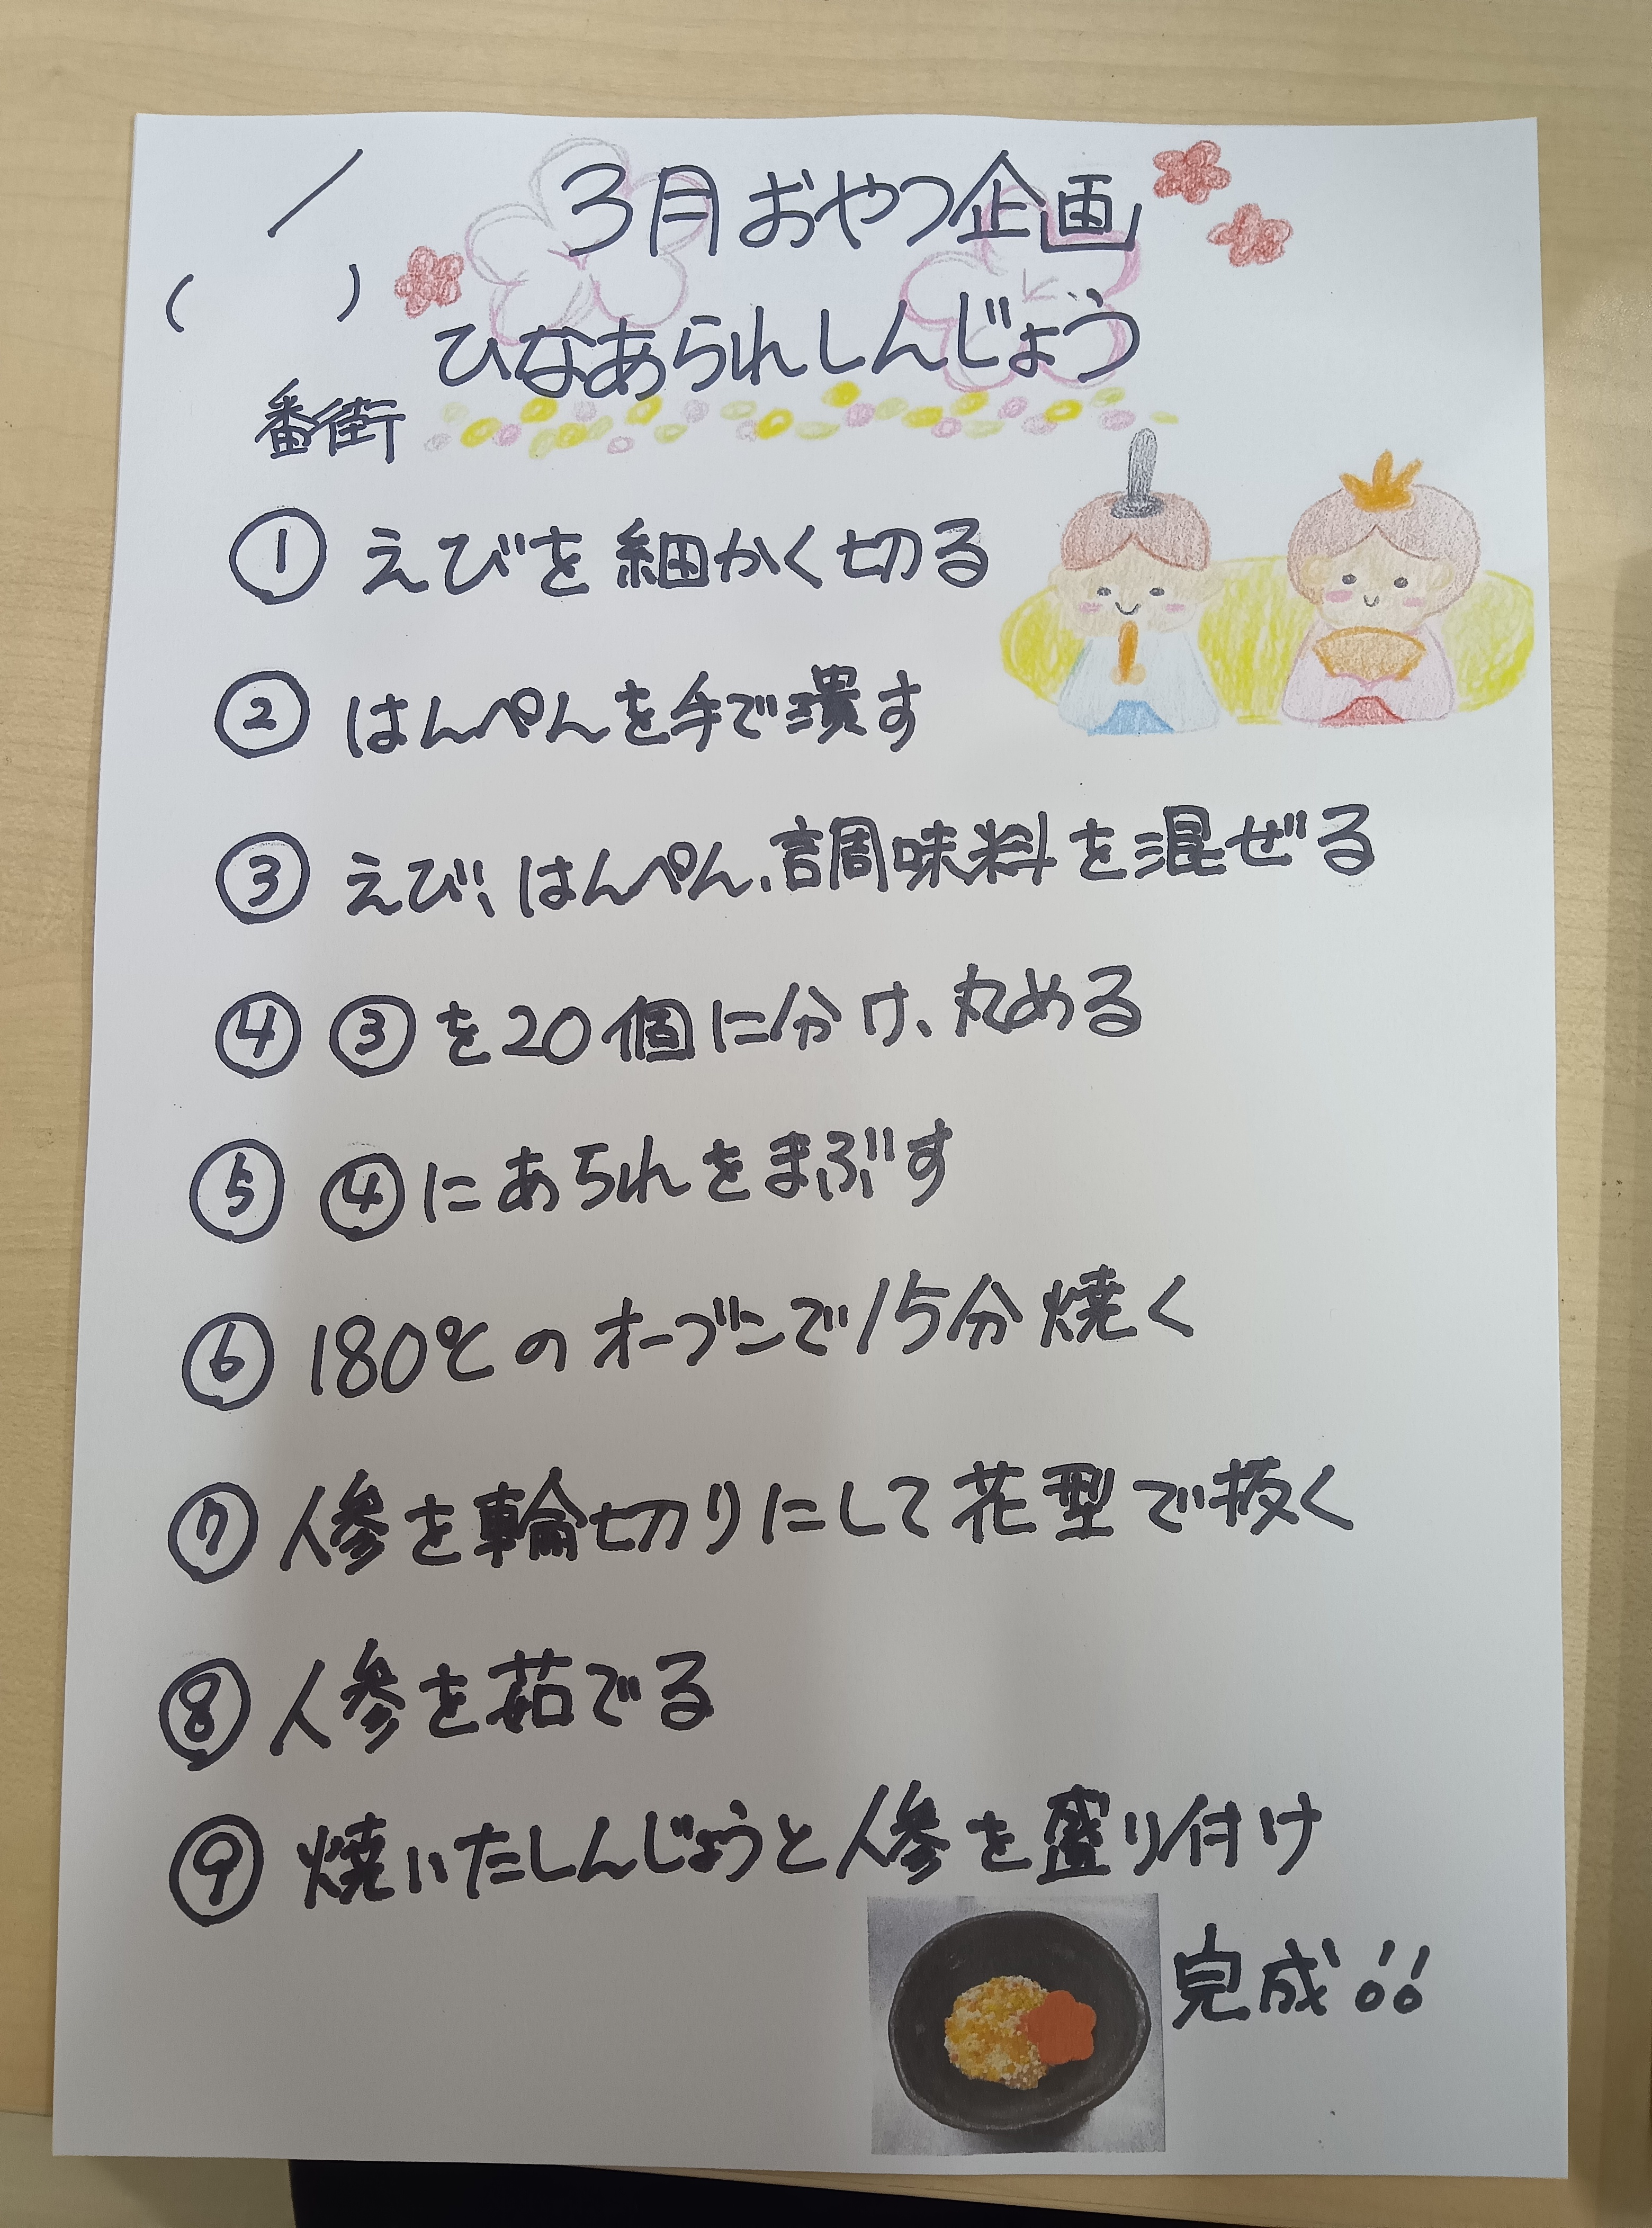 ／
3月おやつ企画
(　　)
ひなあられしんじょう
番街
① えびを細かく切る
② はんぺんを手で潰す
③ えび、はんぺん、調味料を混ぜる
④ ③を20個に分け、丸める
⑤ ④にあられをまぶす
⑥ 180℃のオーブンで15分焼く
⑦ 人参を輪切りにして花型で抜く
⑧ 人参を茹でる
⑨ 焼いたしんじょうと人参を盛り付け
完成!!